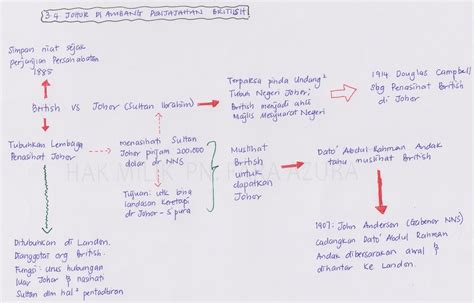 3.4 JOHOR DI AMBANG PENJAJAHAN BRITISH
Simpan niat sejak
perjanjian Persahabatan
1885
British vs Johor (Sultan Ibrahim)
Terpaksa pinda Undang²
Tubuh Negeri Johor;
British menjadi ahli
Majlis Mesyuarat Negeri
1914 Douglas Campbell
sbg Penasihat British
di Johor
Tubuhkan Lembaga
Penasihat Johor
menasihati Sultan
Johor pinjam 200.000
dolar dr NNS
Tujuan: utk bina
landasan keretapi
dr Johor - S'pura
Muslihat
British
untuk
dapatkan
Johor
Dato' Abdul Rahman Andak
tahu muslihat British
HAK MILIK PN. AZURA
Ditubuhkan di London.
Dianggotai org British.
Fungsi: urus hubungan
luar Johor & nasihati
Sultan dlm hal² pentadbiran
1907: John Anderson (Gabenor NNS)
cadangkan Dato' Abdul Rahman
Andak dibersarakan awal &
dihantar ke London.